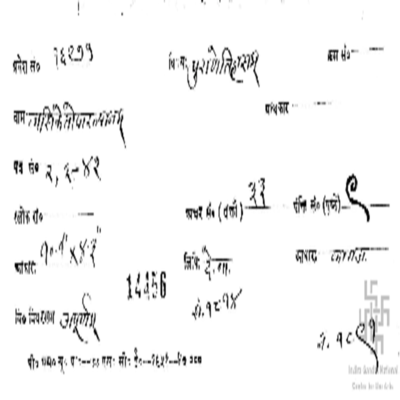 प्रवेश सं० १६२७७ विषय: पुराणेतिहासम् क्रम सं०
नाम नासिकेतोपाख्यानम् ग्रन्थकार
पत्र सं० २, ६-४२
श्लोक सं० अक्षर सं० (पंक्तौ) ३३ पंक्ति सं० (पृष्ठे) ९
आकारः १०.१" x ४.३" लिपिः दे. ना. आधारः कागज
14456 सं. १८१४
वि० विवरणम् अपूर्णम्
सं. १८
Indira Gandhi National
Centre for the Arts